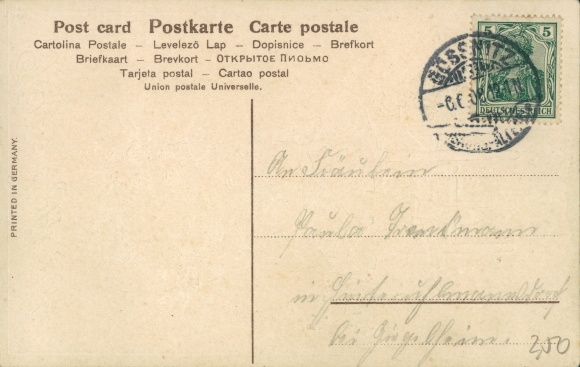 Post card Postkarte Carte postale
Cartolina Postale – Levelező Lap – Dopisnice – Brefkort
Briefkaart – Brevkort – Открытое Письмо
Tarjeta postal – Cartao postal
Union postale Universelle.
PRINTED IN GERMANY.
5 5
DEUTSCHES REICH
GÖSSNITZ
An Fräulein
Paula
in
bei
2,50